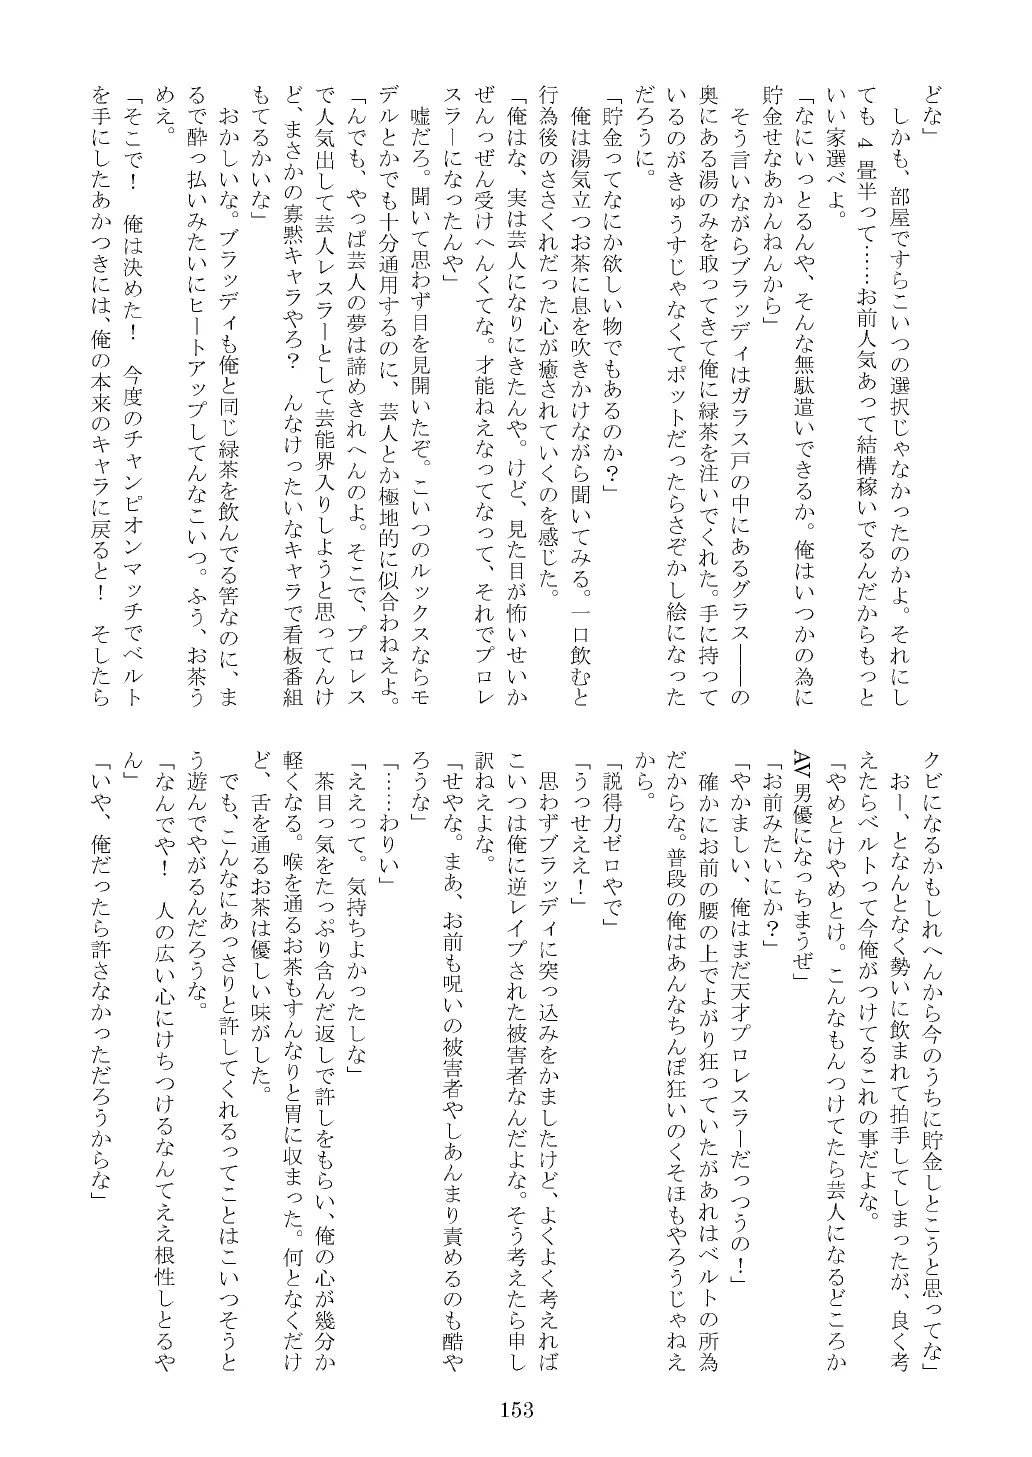 どな」
　しかも、部屋ですらこいつの選択じゃなかったのかよ。それにし
ても 4 畳半って……お前人気あって結構稼いでるんだからもっと
いい家選べよ。
「なにいっとるんや、そんな無駄遣いできるか。俺はいつかの為に
貯金せなあかんねんから」
　そう言いながらブラッディはガラス戸の中にあるグラス――の
奥にある湯のみを取ってきて俺に緑茶を注いでくれた。手に持って
いるのがきゅうすじゃなくてポットだったらさぞかし絵になった
だろうに。
「貯金ってなにか欲しい物でもあるのか？」
　俺は湯気立つお茶に息を吹きかけながら聞いてみる。一口飲むと
行為後のささくれだった心が癒されていくのを感じた。
「俺はな、実は芸人になりにきたんや。けど、見た目が怖いせいか
ぜんっぜん受けへんくてな。才能ねえなってなって、それでプロレ
スラーになったんや」
　嘘だろ。聞いて思わず目を見開いたぞ。こいつのルックスならモ
デルとかでも十分通用するのに、芸人とか極地的に似合わねえよ。
「んでも、やっぱ芸人の夢は諦めきれへんのよ。そこで、プロレス
で人気出して芸人レスラーとして芸能界入りしようと思ってんけ
ど、まさかの寡黙キャラやろ？　んなけったいなキャラで看板番組
もてるかいな」
　おかしいな。ブラッディも俺と同じ緑茶を飲んでる筈なのに、ま
るで酔っ払いみたいにヒートアップしてんなこいつ。ふう、お茶う
めえ。
「そこで！　俺は決めた！　今度のチャンピオンマッチでベルト
を手にしたあかつきには、俺の本来のキャラに戻ると！　そしたら
クビになるかもしれへんから今のうちに貯金しとこうと思ってな」
　おー、となんとなく勢いに飲まれて拍手してしまったが、良く考
えたらベルトって今俺がつけてるこれの事だよな。
「やめとけやめとけ。こんなもんつけてたら芸人になるどころか
AV 男優になっちまうぜ」
「お前みたいにか？」
「やかましい、俺はまだ天才プロレスラーだっつうの！」
　確かにお前の腰の上でよがり狂っていたがあれはベルトの所為
だからな。普段の俺はあんなちんぽ狂いのくそほもやろうじゃねえ
から。
「説得力ゼロやで」
「うっせええ！」
　思わずブラッディに突っ込みをかましたけど、よくよく考えれば
こいつは俺に逆レイプされた被害者なんだよな。そう考えたら申し
訳ねえよな。
「せやな。まあ、お前も呪いの被害者やしあんまり責めるのも酷や
ろうな」
「……わりい」
「ええって。気持ちよかったしな」
　茶目っ気をたっぷり含んだ返しで許しをもらい、俺の心が幾分か
軽くなる。喉を通るお茶もすんなりと胃に収まった。何となくだけ
ど、舌を通るお茶は優しい味がした。
　でも、こんなにあっさりと許してくれるってことはこいつそうと
う遊んでやがるんだろうな。
「なんでや！　人の広い心にけちつけるなんてええ根性しとるや
ん」
「いや、俺だったら許さなかっただろうからな」
153